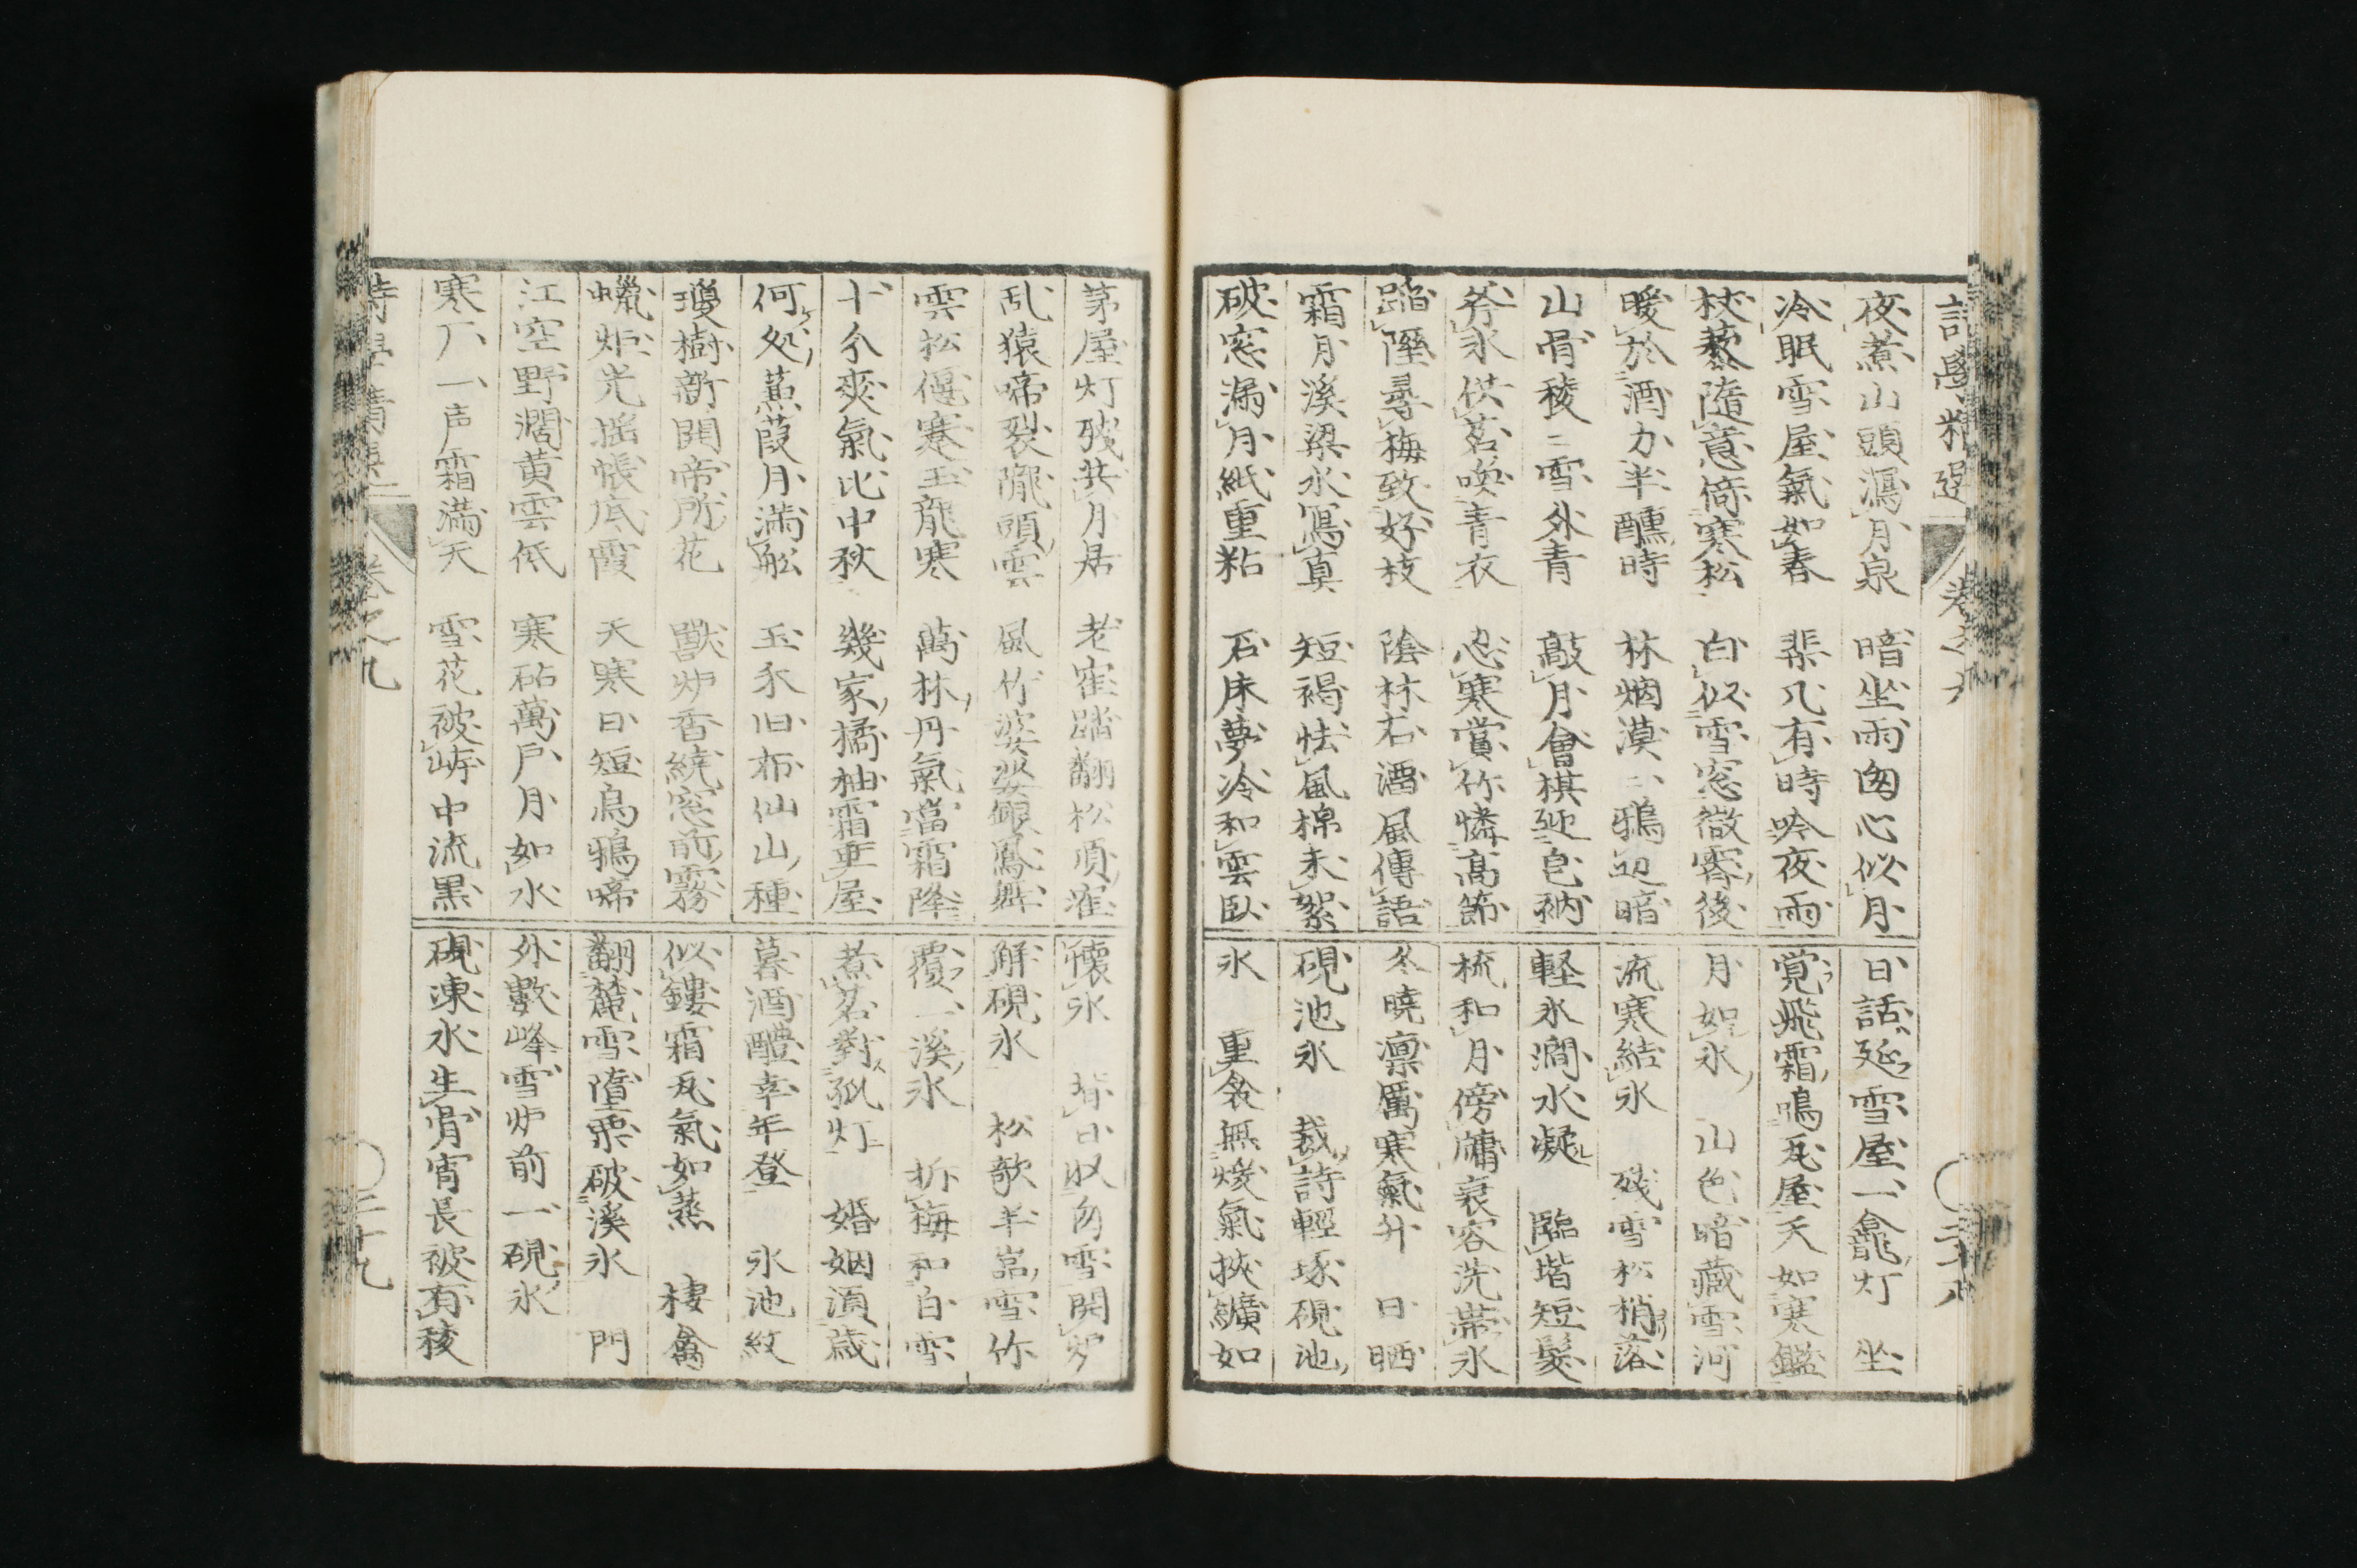 夜煮山頭瀉月泉 暗坐雨囱心似月
冷眠雪屋氣如春 棐几有時吟夜雨
杖藜隨意倚寒松 白似雪窓微霽後
暖於酒力半醺時 林烟漠〻鴉辺暗
山骨稜〻雪外青 敲月會棋延皀衲
斧氷供茗喚青衣 忍寒賞竹憐高節
踏隥尋梅致好枝 陰林石酒風傳語
霜月溪梁氷寫真 短褐怯風棉未絮
破窓漏月紙重粘 石床夢冷和雲臥
日話延雪屋一龕灯 坐
覚飛霜鳴瓦屋天如寒鑑
月如氷 山色暗藏雪河
流寒結氷 残雪松梢落
軽氷澗水凝 臨堦短髮
梳和月傍牗衰容洗帶氷
冬曉凛厲寒氣升 日晒
硯池氷 裁詩輕琢硯池
氷 重衾無煖氣挾纊如
茅屋灯残共月居 老寉踏翻松頂
乱猿啼裂隴頭雲 風竹婆娑銀鳳舞
雲松偃蹇玉龍寒 萬林丹氣當霜降
十分爽氣比中秋 幾家橘柚霜垂屋
何処蒹葭月滿舩 玉禾旧布仙山種
瓊樹新開帝所花 獸炉香繞窓前霧
蠟炬光搖帳底霞 天寒日短烏鴉啼
江空野濶黄雲低 寒砧萬戶月如水
寒厂一声霜満天 雪花被岸中流黒
懐氷 背日収角雪開炉
解硯氷 松欹半嵓雪竹
覆一溪氷 折梅和白雪
煮茗對孤灯 婚姻湏歲
暮酒醴幸年登 氷池紋
似鏤霜瓦氣如蒸 棲禽
翻麓雪墮栗破溪氷 門
外數峰雪炉前一硯氷
硯凍氷生骨宵長被有稜
卷之九
二十九